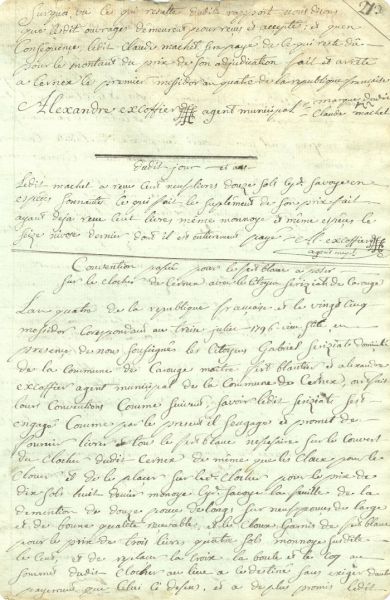 213
Surquoi, vu ce qui resulte dudit rapport nous disons
que ledit ouvrages demeurent pour reçus et acceptés, et quen
Consequence, ledit Claude machet sera payé de ce qui reste dû
pour le montant du prix de son adjudication fait et arrêté
a Cernex le premier messidor au quatre de la republique francaise
Alexandre excoffier agent municipal = marque dudit
Claude machet
dudit jour et an
Ledit machet a reçus Cent neuf livres douze sols Cy Savoye en
espèces Sonnante ce qui fait le suplement de son prix fait
ayant deja reçu Cent livres même monnoye et même espèces le
seize dernier dont il est entierement payé A. excoffier
agent mupal
Convention passée pour le ferblanc a poser
sur le clocher de Cernex avec le Citoyen de Carouge
L'an quatre de la republique francaise et le vingt cinq
messidor Correspondant au treize juillet 1796 vieux stile, en
presence de nous soussignés les Citoyens Gabriel domicilié
de la Commune de Carouge maitre ferblantier et alexandre
excoffier agent municipal de la Commune de Cernex, ont fait
leurs Conventions Comme suivent, savoir ledit s'est
engagé Comme par le present il s'engage et promet de
fournir livrer tout le ferblanc nesessaire sur le Couvert
du Clocher dudit Cernex de même que les Cloux pour le
Clouer et de le placer sur le Clocher pour le prix de
dix sols huit denier monoye Cy Savoye la feuille de la
demention de douze pouces de long, sur neuf pouces de large
et de bonne qualité recevable, et les Cloux Garnis de ferblanc
pour le prix de trois livres quatre sols monnoye susdite
le Cent, et de replacer la Croix la boule et le Coq au
sommet dudit Clocher au lieu a ce destiné sans exiger d'autre
payement que Celui Ci dessus, et a de plus promis ledit